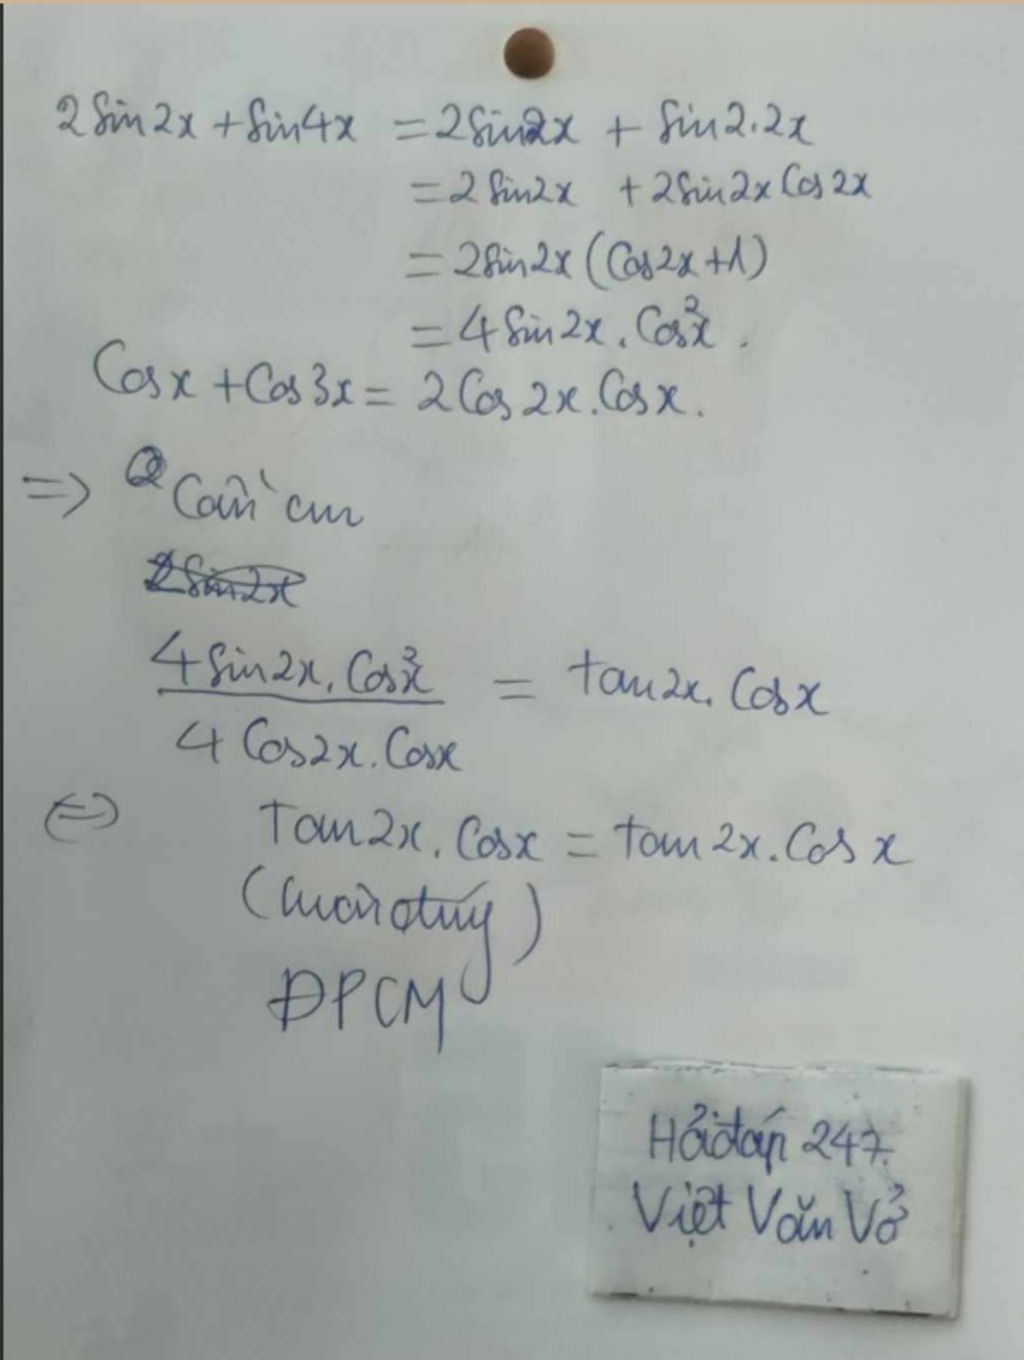 2Sin2x + Sin4x = 2Sin2x + Sin2.2x
= 2Sin2x + 2Sin2x Cos2x
= 2Sin2x (Cos2x+1)
= 4Sin2x . Cos²x .
Cosx + Cos3x = 2Cos2x.Cosx.
=> Cần cm
2Sin2x
4Sin2x . Cos²x = tan2x. Cosx
4Cos2x . Cosx
<=> Tan2x . Cosx = tan2x.Cosx
(luôn đúng)
ĐPCM
Hỏi đáp 247.
Việt Văn Vở